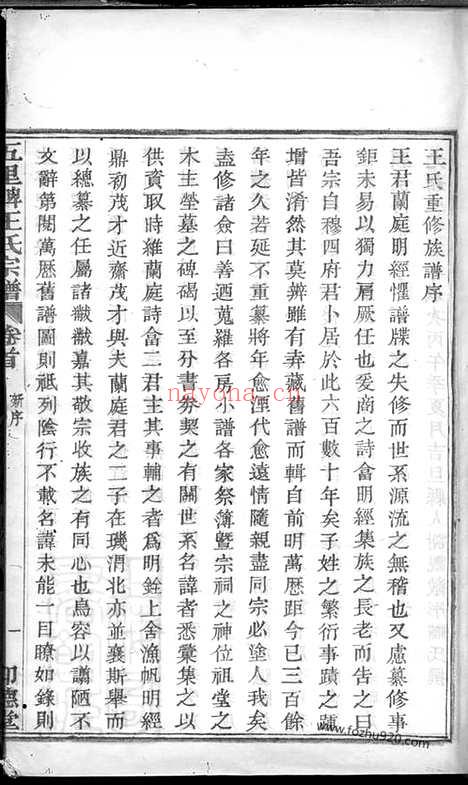 王氏重修族譜序
王君蘭庭明經懼譜牒之失修而世系源流之無稽也又慮纂修事
鉅未易以獨力肩厥任也爰商之詩畬明經集族之長老而告之曰
吾宗自穆四府君卜居於此六百數十年矣子姓之繁衍事蹟之
增皆淆然其莫辨雖有弆藏舊譜而輯自前明萬歷距今已三百餘
年之久若延不重纂將年愈湮代愈遠情隨親盡同宗必塗人我矣
盍修諸僉曰善迺蒐羅各房小譜各家祭簿暨宗祠之神位祖堂之
木主塋墓之碑碣以至分書券契之有關世系名諱者悉彙集之以
供資取時維蘭庭詩畬二君主其事輔之者爲明銓上舍漁帆明經
鼎初茂才近齋茂才與夫蘭庭君之二子在璣渭北亦並襄斯舉而
以總纂之任屬諸黻黻嘉其敬宗收族之有同心也烏容以譾陋不
文辭第閱萬歷舊譜圖則祗列陰行不載名諱未能一目瞭如錄則
五里牌王氏宗譜 卷首 新序 一
nayona.cn
www.fozhu920.com